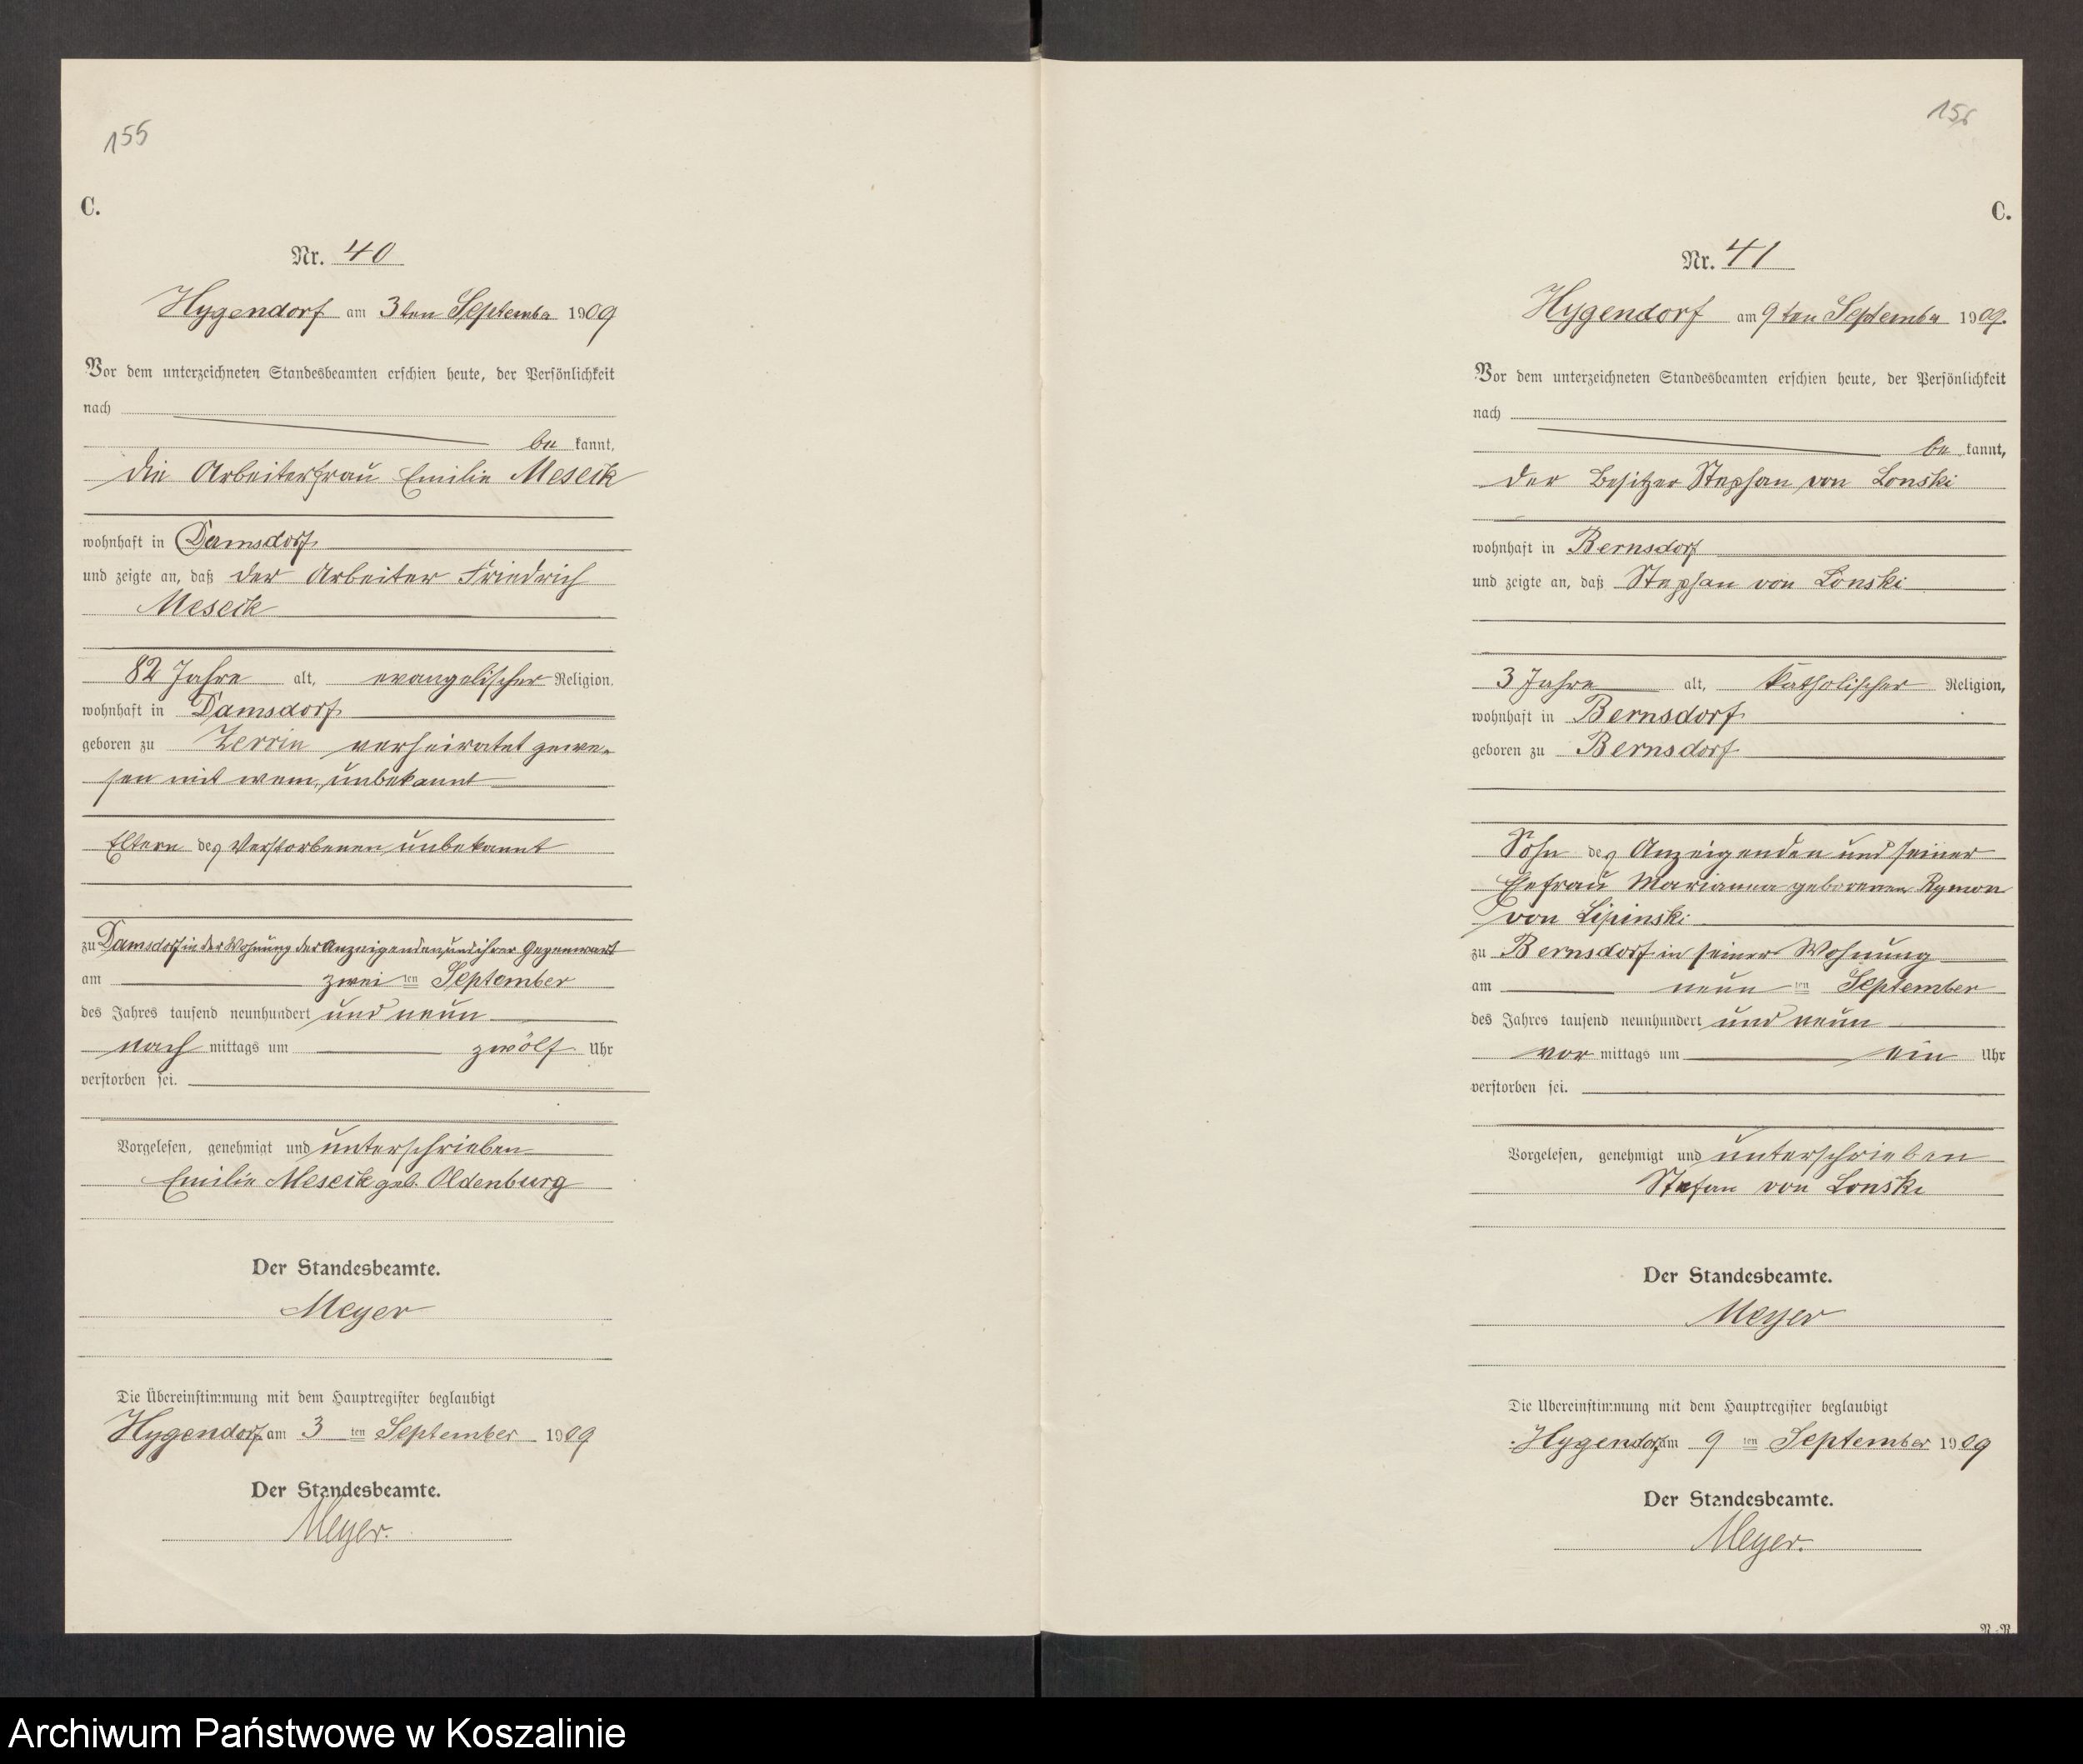 155
C.
Nr. 40
Hygendorf am 3ten September 1909
Vor dem unterzeichneten Standesbeamten erschien heute, der Persönlichkeit
nach
be kannt,
die Arbeiterfrau Emilie Meseik
wohnhaft in Damsdorf
und zeigte an, daß der Arbeiter Friedrich
Meseik
82 Jahre alt, evangelischer Religion,
wohnhaft in Damsdorf
geboren zu Zerrin verheiratet gewe-
sen mit wem, unbekannt
Eltern des Verstorbenen unbekannt
zu Damsdorf in der Wohnung der Anzeigenden und ihrer Gegenwart
am zwei ten September
des Jahres tausend neunhundert und neun
nach mittags um zwölf Uhr
verstorben sei.
Vorgelesen, genehmigt und unterschrieben
Emilie Meseik geb. Oldenburg
Der Standesbeamte.
Meyer
Die Übereinstimmung mit dem Hauptregister beglaubigt
Hygendorf am 3 ten September 1909
Der Standesbeamte.
Meyer.
156
C.
Nr. 41
Hygendorf am 9ten September 1909.
Vor dem unterzeichneten Standesbeamten erschien heute, der Persönlichkeit
nach
be kannt,
der Besitzer Stephan von Lonski
wohnhaft in Bernsdorf
und zeigte an, daß Stephan von Lonski
3 Jahre alt, katholischer Religion,
wohnhaft in Bernsdorf
geboren zu Bernsdorf
Sohn des Anzeigenden und seiner
Ehefrau Marianna geborenen Rymon
von Lipinski
zu Bernsdorf in seiner Wohnung
am neun ten September
des Jahres tausend neunhundert und neun
vor mittags um ein Uhr
verstorben sei.
Vorgelesen, genehmigt und unterschrieben
Stefan von Lonski
Der Standesbeamte.
Meyer
Die Übereinstimmung mit dem Hauptregister beglaubigt
Hygendorf am 9 ten September 1909
Der Standesbeamte.
Meyer.
Archiwum Państwowe w Koszalinie